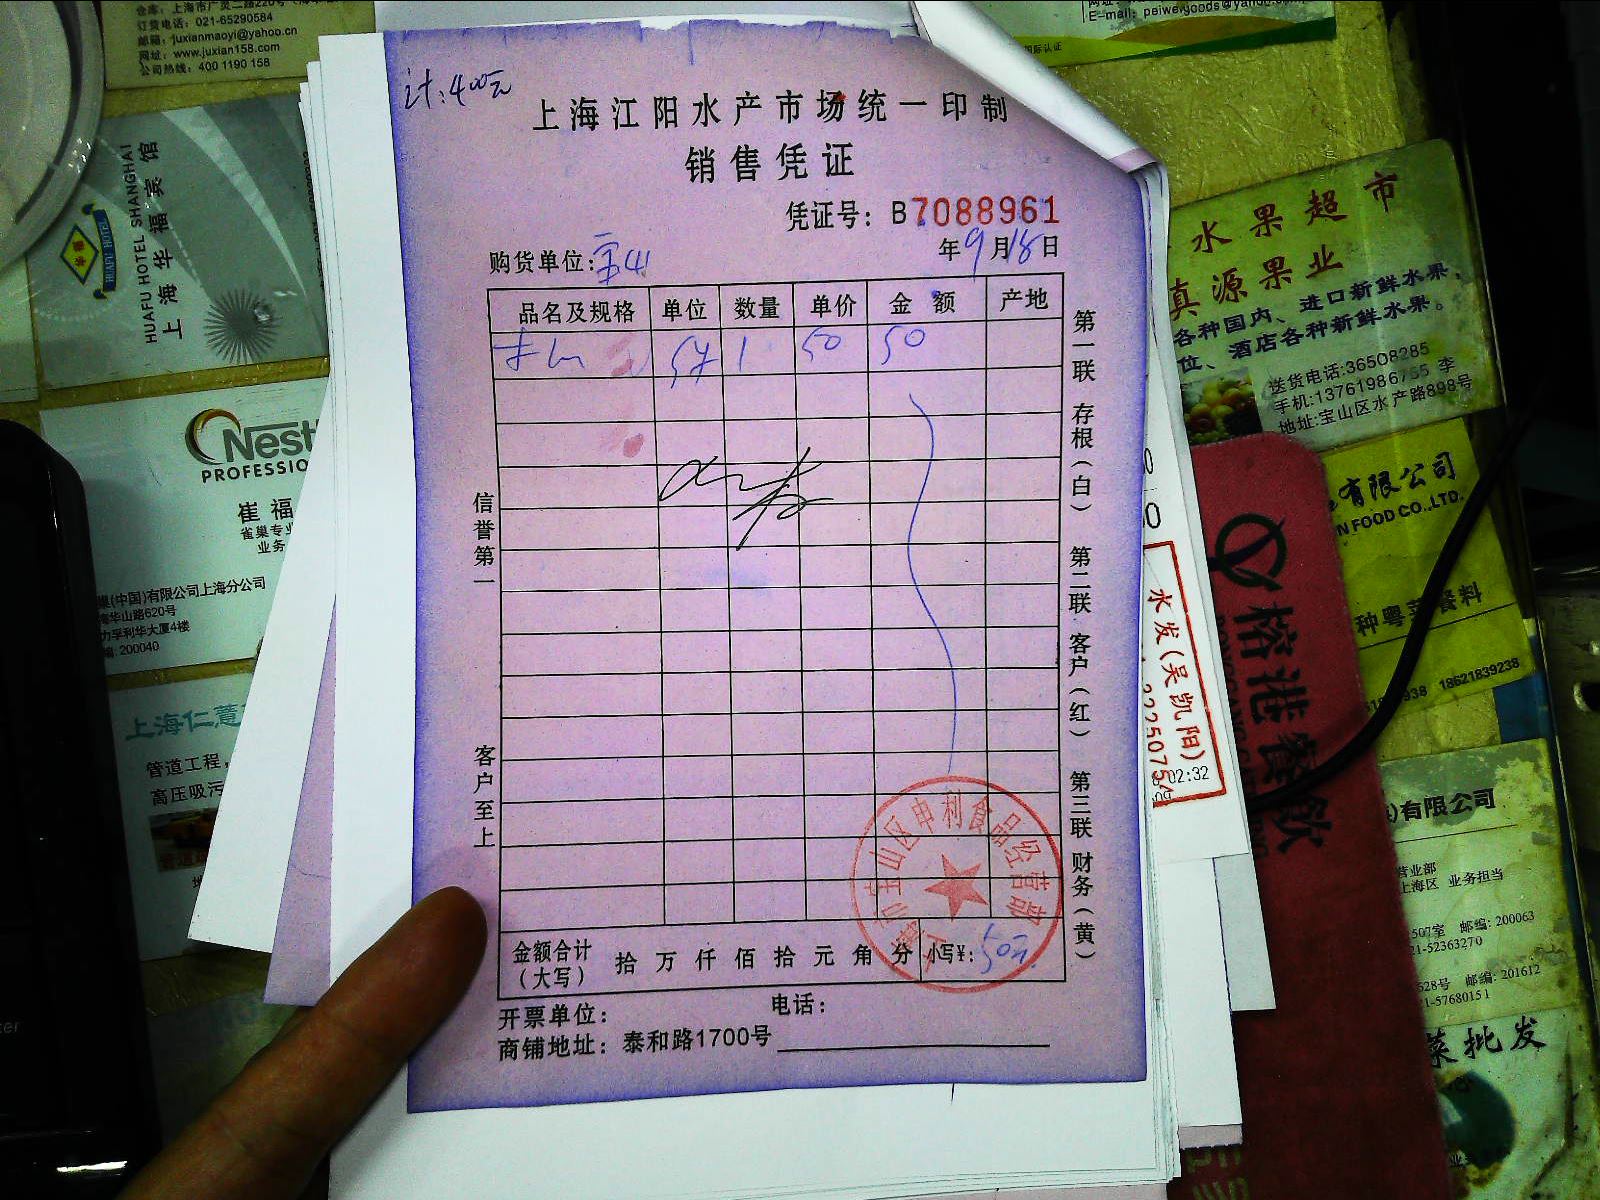 仓库：上海市广灵二路220号
订货电话：021-65290584
邮箱：juxianmaoyi@yahoo.cn
网址：www.juxian158.com
公司热线：400 1190 158
E-mail：peiweiyoods@yahoo
国际认证
HUAFU HOTEL SHANGHAI
上海华福宾馆
HUAFU HOTEL
Nest
PROFESSIO
崔福
雀巢专业
业务
巢(中国)有限公司上海分公司
海华山路620号
力孚利华大厦4楼
编：200040
上海仁薏
管道工程，
高压吸污
计：400元
上海江阳水产市场统一印制
销售凭证
凭证号：B7088961
购货单位：
年9月18日
品名及规格 单位 数量 单价 金额 产地
1 50 50
信誉第一
客户至上
第一联 存根（白） 第二联 客户（红） 第三联 财务（黄）
宝山区申利食品经营部
金额合计（大写） 拾 万 仟 佰 拾 元 角 分 小写¥：50元
开票单位： 电话：
商铺地址：泰和路1700号
水果超市
真源果业
各种国内、进口新鲜水果，
位、酒店各种新鲜水果。
送货电话:36508285
手机:13761986755 李
地址:宝山区水产路898号
有限公司
N FOOD CO.,LTD.
种粤菜餐料
938 18621839238
榕港餐饮
水发(吴凯阳)
02:32
有限公司
营业部
上海区 业务担当
507室 邮编：200063
21-52363270
528号 邮编：201612
21-57680151
菜批发